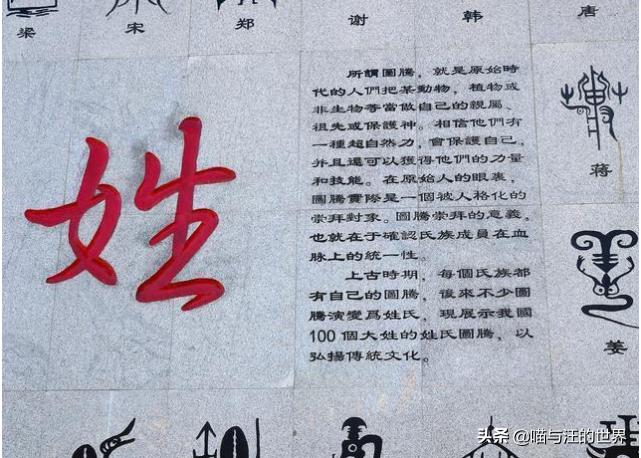 梁
宋
郑
谢
韩
唐
姓
所謂圖騰，就是原始時
代的人們把某動物，植物或
非生物等當做自己的親屬、
祖先或保護神。相信他們有
一種超自然力，會保護自己，
并且還可以獲得他們的力量
和技能。在原始人的眼裏，
圖騰實際是一個被人格化的
崇拜對象。圖騰崇拜的意義，
也就在于確認氏族成員在血
脉上的統一性。
上古時期，每個氏族都
有自己的圖騰，後來不少圖
騰演變爲姓氏，現展示我國
100個大姓的姓氏圖騰，以
弘揚傳統文化。
蒋
姜
头条 @喵与汪的世界